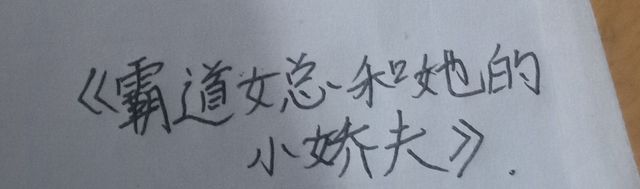 《霸道女总和她的
小娇夫》.